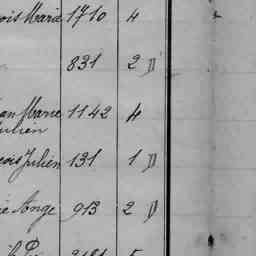 ois Marie 1710 4
831 2 D
an Marie 1142 4
ulien
cois Julien 131 1 D
ie Ange 913 2 D